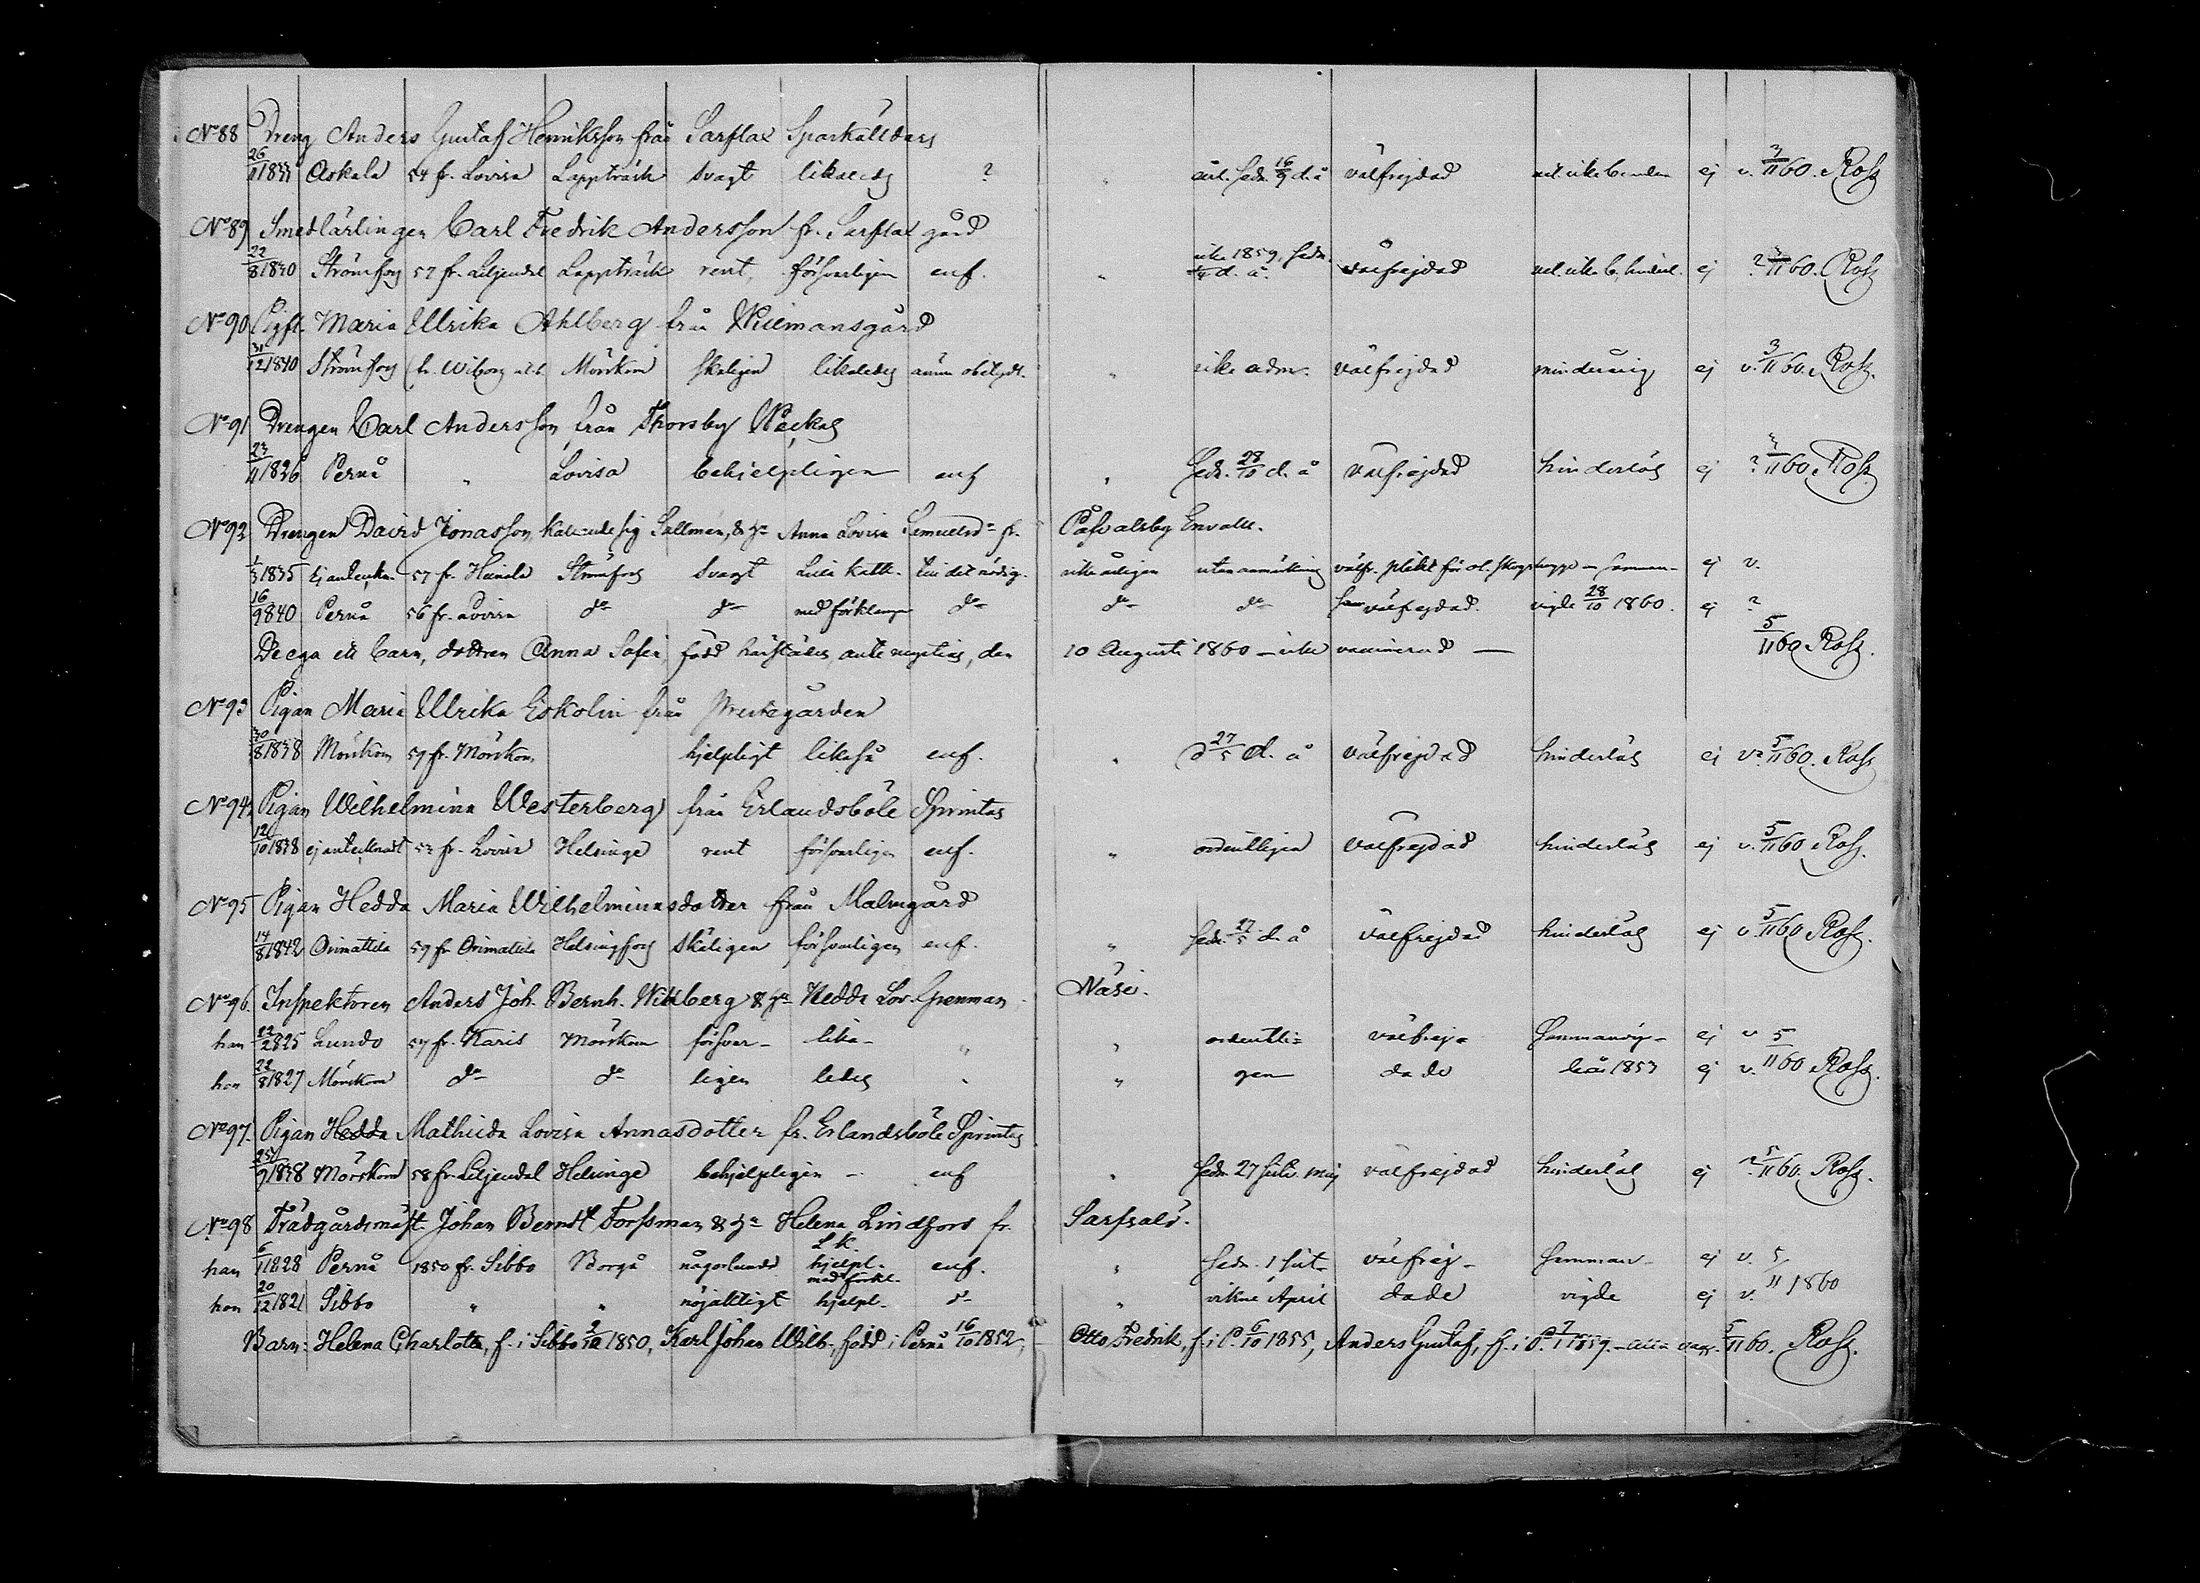 No 88 Dreng Anders Gustaf Henriksson från Sarflax Sparkulldars
26/11 1833 Askola 54 fr. Lovisa Lappträsk svagt likaledes ? " sedn. 16/9 d. å välfrejdad ej v. 3/11 60. Ross
No 89 Smedlärlingen Carl Fredrik Andersson fr. Sarflax gård
22/8 1840 Strömfors 57 fr. Liljendal Lappträsk rent, försvarligen enf. " icke 1859, sedn. d. å. välfrejdad ej ? 3/11 60. Ross
No 90 Maria Ulrika Ahlberg från Willmansgård
31/12 1840 Strömfors Mörskom skäligen likaledes ännu obetydl. " icke adm. välfrejdad minderårig ej v. 3/11 60. Ross.
No 91 Drengen Carl Andersson från Thorsby Weckas
23/11 1826 Pernå " Lovisa behjelpligen enf " sedn. 28/10 d. å välfrejdad hinderlös ej ? 3/11 60. Ross
No 92 Drengen David Jonasson, kallande sig Sallmén, & h:u Anna Lovisa Samuelsd:r fr. Påsvalsby Envalls.
1/3 1835 Ej anteckn. 57 fr. Strömfors svagt Lilla Katk. till det nödig. icke årligen utan anmärkning välfr. plikt för ol. skogshygge — samman- ej v.
16/9 840 Pernå 56 fr. Lovisa d:o d:o med förklaringen d:o d:o d:o välfrejdad. vigde 28/10 1860. ej ?
Dega ett barn, dottren Anna Sofia, född härstädes, ante nuptias, den 10 Augusti 1860 — icke vaccinerad — 5/11 60 Ross.
No 93 Pigan Maria Ulrika Eskolin från Prestegården
30/8 1838 Mörskom 59 fr. Mörskom hjelpligt likaså enf. " 27/5 d. å välfrejdad hinderlös ej v. 5/11 60. Ross
No 94 Pigan Wilhelmina Westerberg från Erlandsböle Sprints
12/10 1838 ej antecknadt 53 fr. Lovisa Helsinge rent försvarligen enf. " ordentligen välfrejdad hinderlös ej v. 5/11 60 Ross.
No 95 Pigan Hedda Maria Wilhelminasdotter från Malmgård
14/8 1842 Orimattila 59 fr Orimattila Helsingfors skäligen försvarligen enf. " sedn. 27/5 d. å välfrejdad hinderlös ej v. 5/11 60 Ross.
No 96. Inspektoren Anders Joh. Bernh. Wikberg & h:u Hedda Lov. Grenman Näse.
han 22/2 825 Lundo 57 fr. Karis Mörskom försvar- lika- " " ordentli- välfrej- Sammanvig- ej v 5
hon 22/8 1827 Mörskom d:o d:o ligen ledes " " gen dade de år 1853 ej v. 11 60 Ross.
No 97. Pigan Hedda Mathilda Lovisa Annasdotter fr. Erlandsböle Sprints
25/9 1838 Mörskom 58 fr. Liljendal Helsinge behjelpligen - enf " sedn. 27 sistl. maj välfrejdad hinderlös ej ? 5/11 60. Ross.
No 98 Trädgårdsmäst. Johan Berndt Forssman & h:u Helena Lindfors fr. Sarfsalö.
han 6/1 1828 Pernå 1850 fr. Sibbo Borgå någorlunda L. K. hjelpl. enf. " sedn. 1 sist- välfrej- Samman- ej v. 5
hon 20/12 1821 Sibbo " " nöjaktigt med förkl. hjelpl. d:o " vikne April dade vigde ej v. 11 1860
Barn: Helena Charlotta, f. i Sibbo 2/10 1850, Karl Johan Wilh. född i Perna 16/10 1852, Otto Fredrik, f. i P. 6/10 1855, Anders Gustaf, f. i P. 7/1 1859. — alla vacc. 5/11 60. Ross.